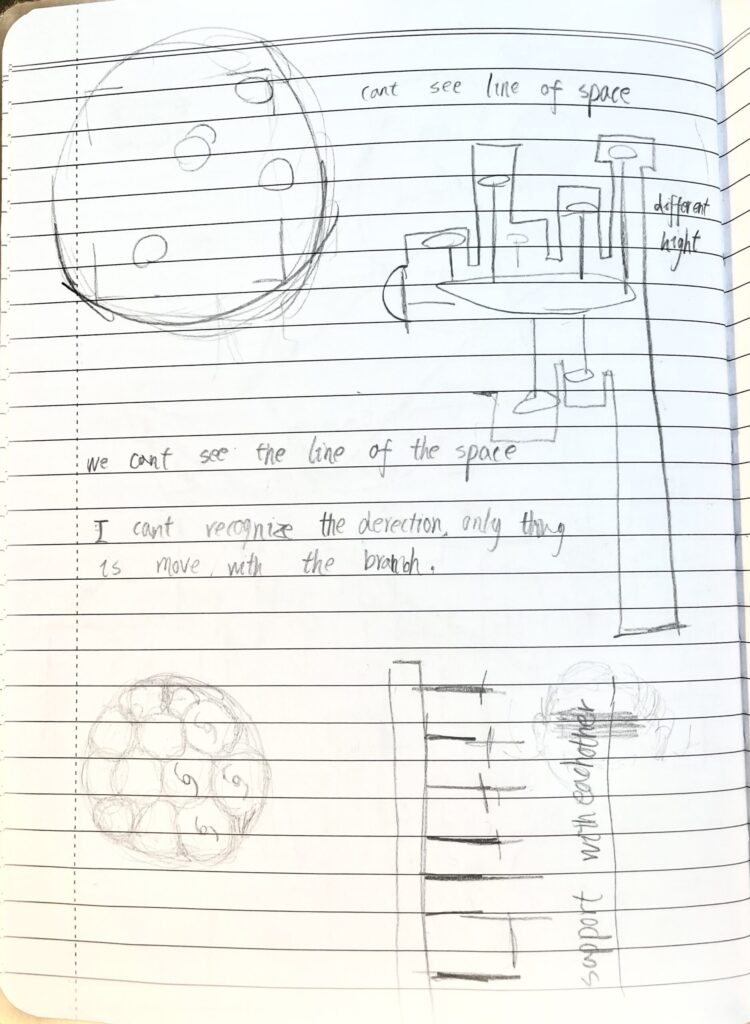 cant see line of space
different
hight
we cant see the line of the space
I cant recognize the derection, only thing
is move with the branch.
support with eachother